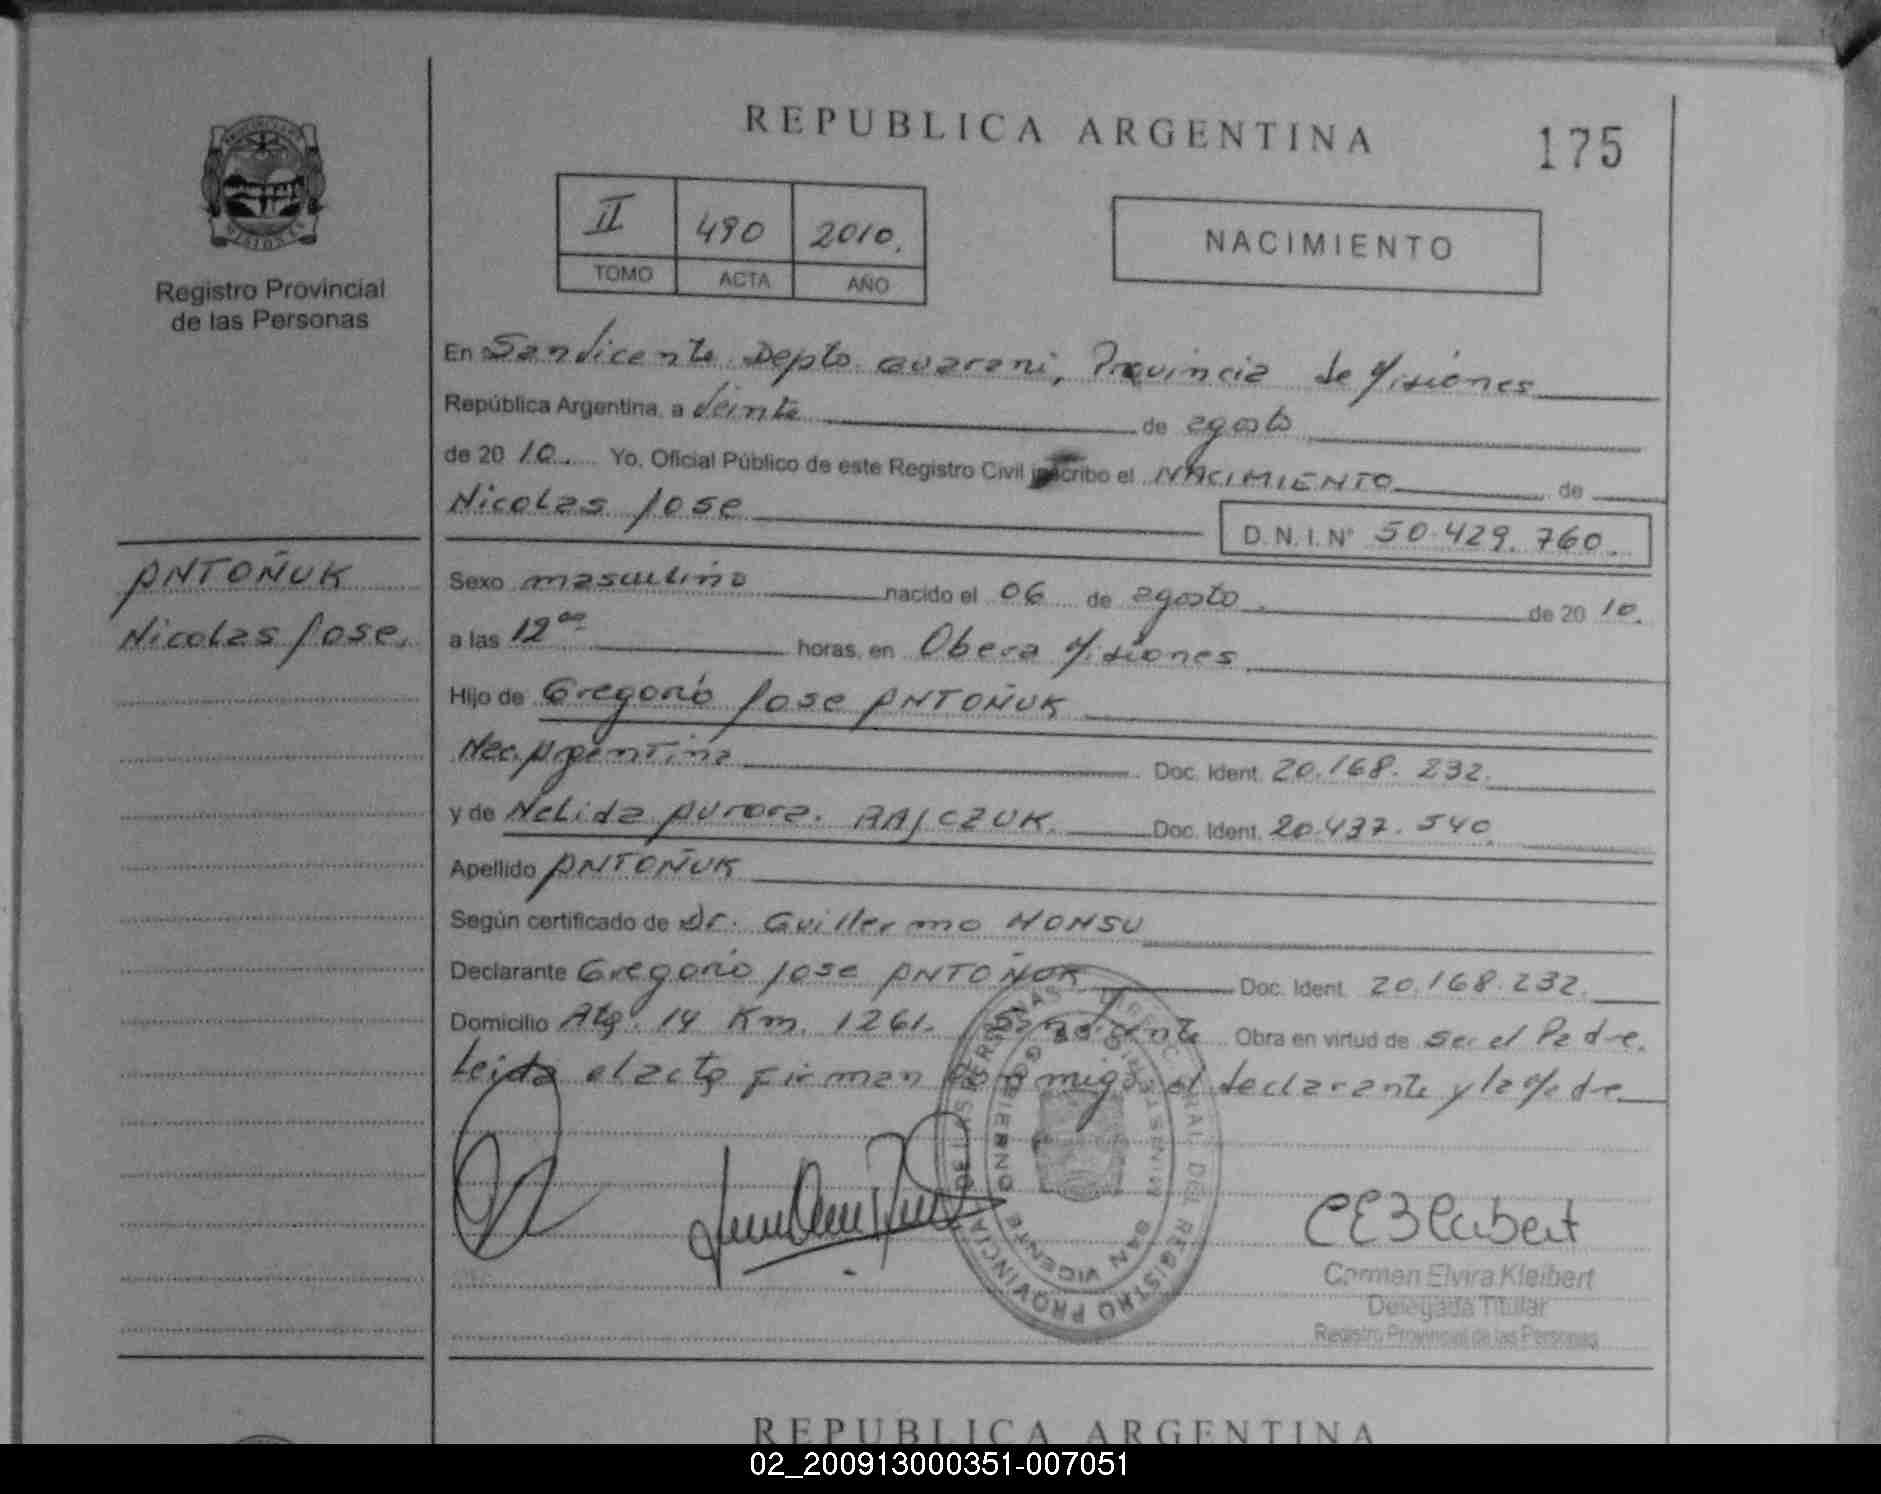 REPUBLICA ARGENTINA
175
II 490 2010.
TOMO ACTA AÑO
NACIMIENTO
MISIONES
Registro Provincial
de las Personas
ANTOÑUK
Nicolas Jose.
En San Vicente Depto Guarani, Provincia de Misiones
República Argentina, a Veinte de agosto
de 2010. Yo, Oficial Público de este Registro Civil inscribo el NACIMIENTO de
Nicolas Jose D.N.I.Nº 50.429.760.
Sexo masculino nacido el 06 de agosto. de 2010.
a las 12ºº horas, en Obera Misiones
Hijo de Gregorio Jose ANTOÑUK
Nac. Argentina Doc. Ident. 20.168.232.
y de Nelida Aurora. RAJCZUK. Doc. Ident. 20.437.540
Apellido ANTOÑUK
Según certificado de Dr. Guillermo
Declarante Gregorio Jose ANTOÑUK Doc. Ident. 20.168.232.
Domicilio 14 Km. 1261. San Vicente Obra en virtud de Ser el Padre.
Leida el acta firman conmigo el declarante y la Madre
REGISTRO PROVINCIAL DE LAS PERSONAS
GOBIERNO
SAN VICENTE
Carmen Elvira Kleibert
Delegada Titular
Registro Provincial de las Personas
REPUBLICA ARGENTINA
02_200913000351-007051